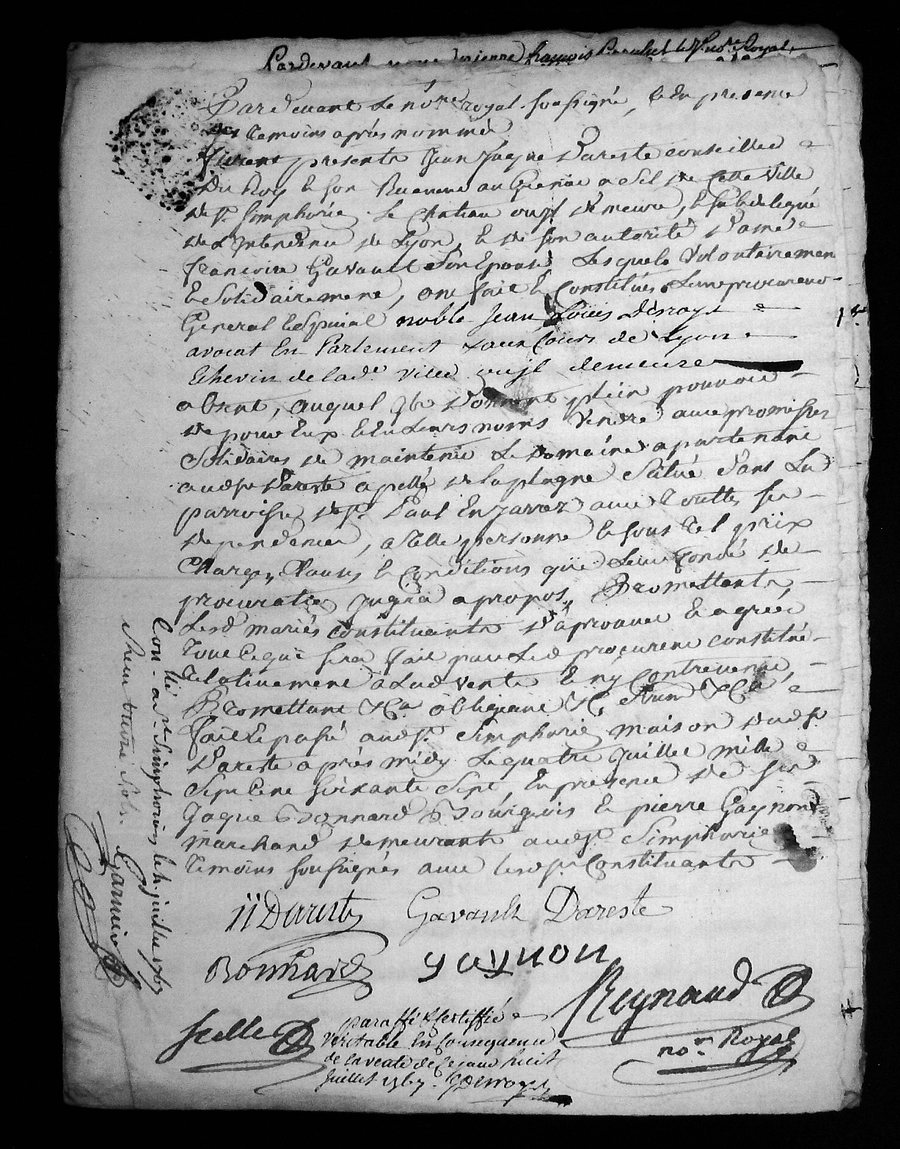 Pardevant françois Royal
Pardevant Le no.re royal soussigné, & En presence
des temoins après nommé
furent presents Jean Jaque Dareste conseiller
Du Roy & son au Grenier a Sel de Cette Ville
de St. Simphorien Le Chateau ou il demeure, & subdelegué
de L'Intendance de Lyon, & de son autorité Dame
françoise Gavault Son Epouse Lesquels Volontairement
& Solidairement, ont fait & Constitués Leur procureur
General & special noble Jean Louis Deroys
avocat En Parlement & aux Cours de Lyon
Echevin de lad.e ville ou il demeure
absent, auquel ils Donnent plein pouvoir
de pour Eux & En Leurs noms Vendre avec promesses
Solidaires de maintenir Le Domaine apartenant
aud. Sr Dareste apellé de la plagne Situé Dans La
parroisse de St. Paul En Jarrez avec touttes ses
dependances, a telle personne & sous tel prix
Charges, Clauses & Conditions que Leur fondé de
procuration Jugera apropos, Promettants
Lesd. mariés constituants D'aprouver & agréer
tout ce qui sera fait par Led. procureur constitué
relativement a Lad. vente & n'y Contrevenir
Promettant &ca obligeant &ca Renon &ca
fait & passé aud. St. Simphorien maison dud. Sr
Dareste après midy Le quatre Juillet mille
Sept Cent soixante Sept, En presence de Sr
Jaque Bonnard Bourgeois & pierre Gaynon
marchand demeurants aud. St. Simphorien
temoins soussignés avec lesd. Sr. Constituants
JJ Dareste Gavault Dareste
Bonnard gaynon
Reynaud
no.re Royal
Scellé
paraffé & certiffié
Veritable En Consequence
de la vente de ce jour huit
Juillet 1767. Deroys
Con.llé a St. Simphorien le 4 juillet 1767
Reçu treize sols. Garnier